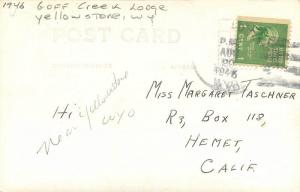 1946 GOFF CREEK LODGE
YELLOWSTONE, WY
POST CARD
AUG
1946
WYO
1 CENT 1
Hi
near Yellowstone
WYO
MISS MARGARET TASCHNER
R3, BOX 118,
HEMET,
CALIF.